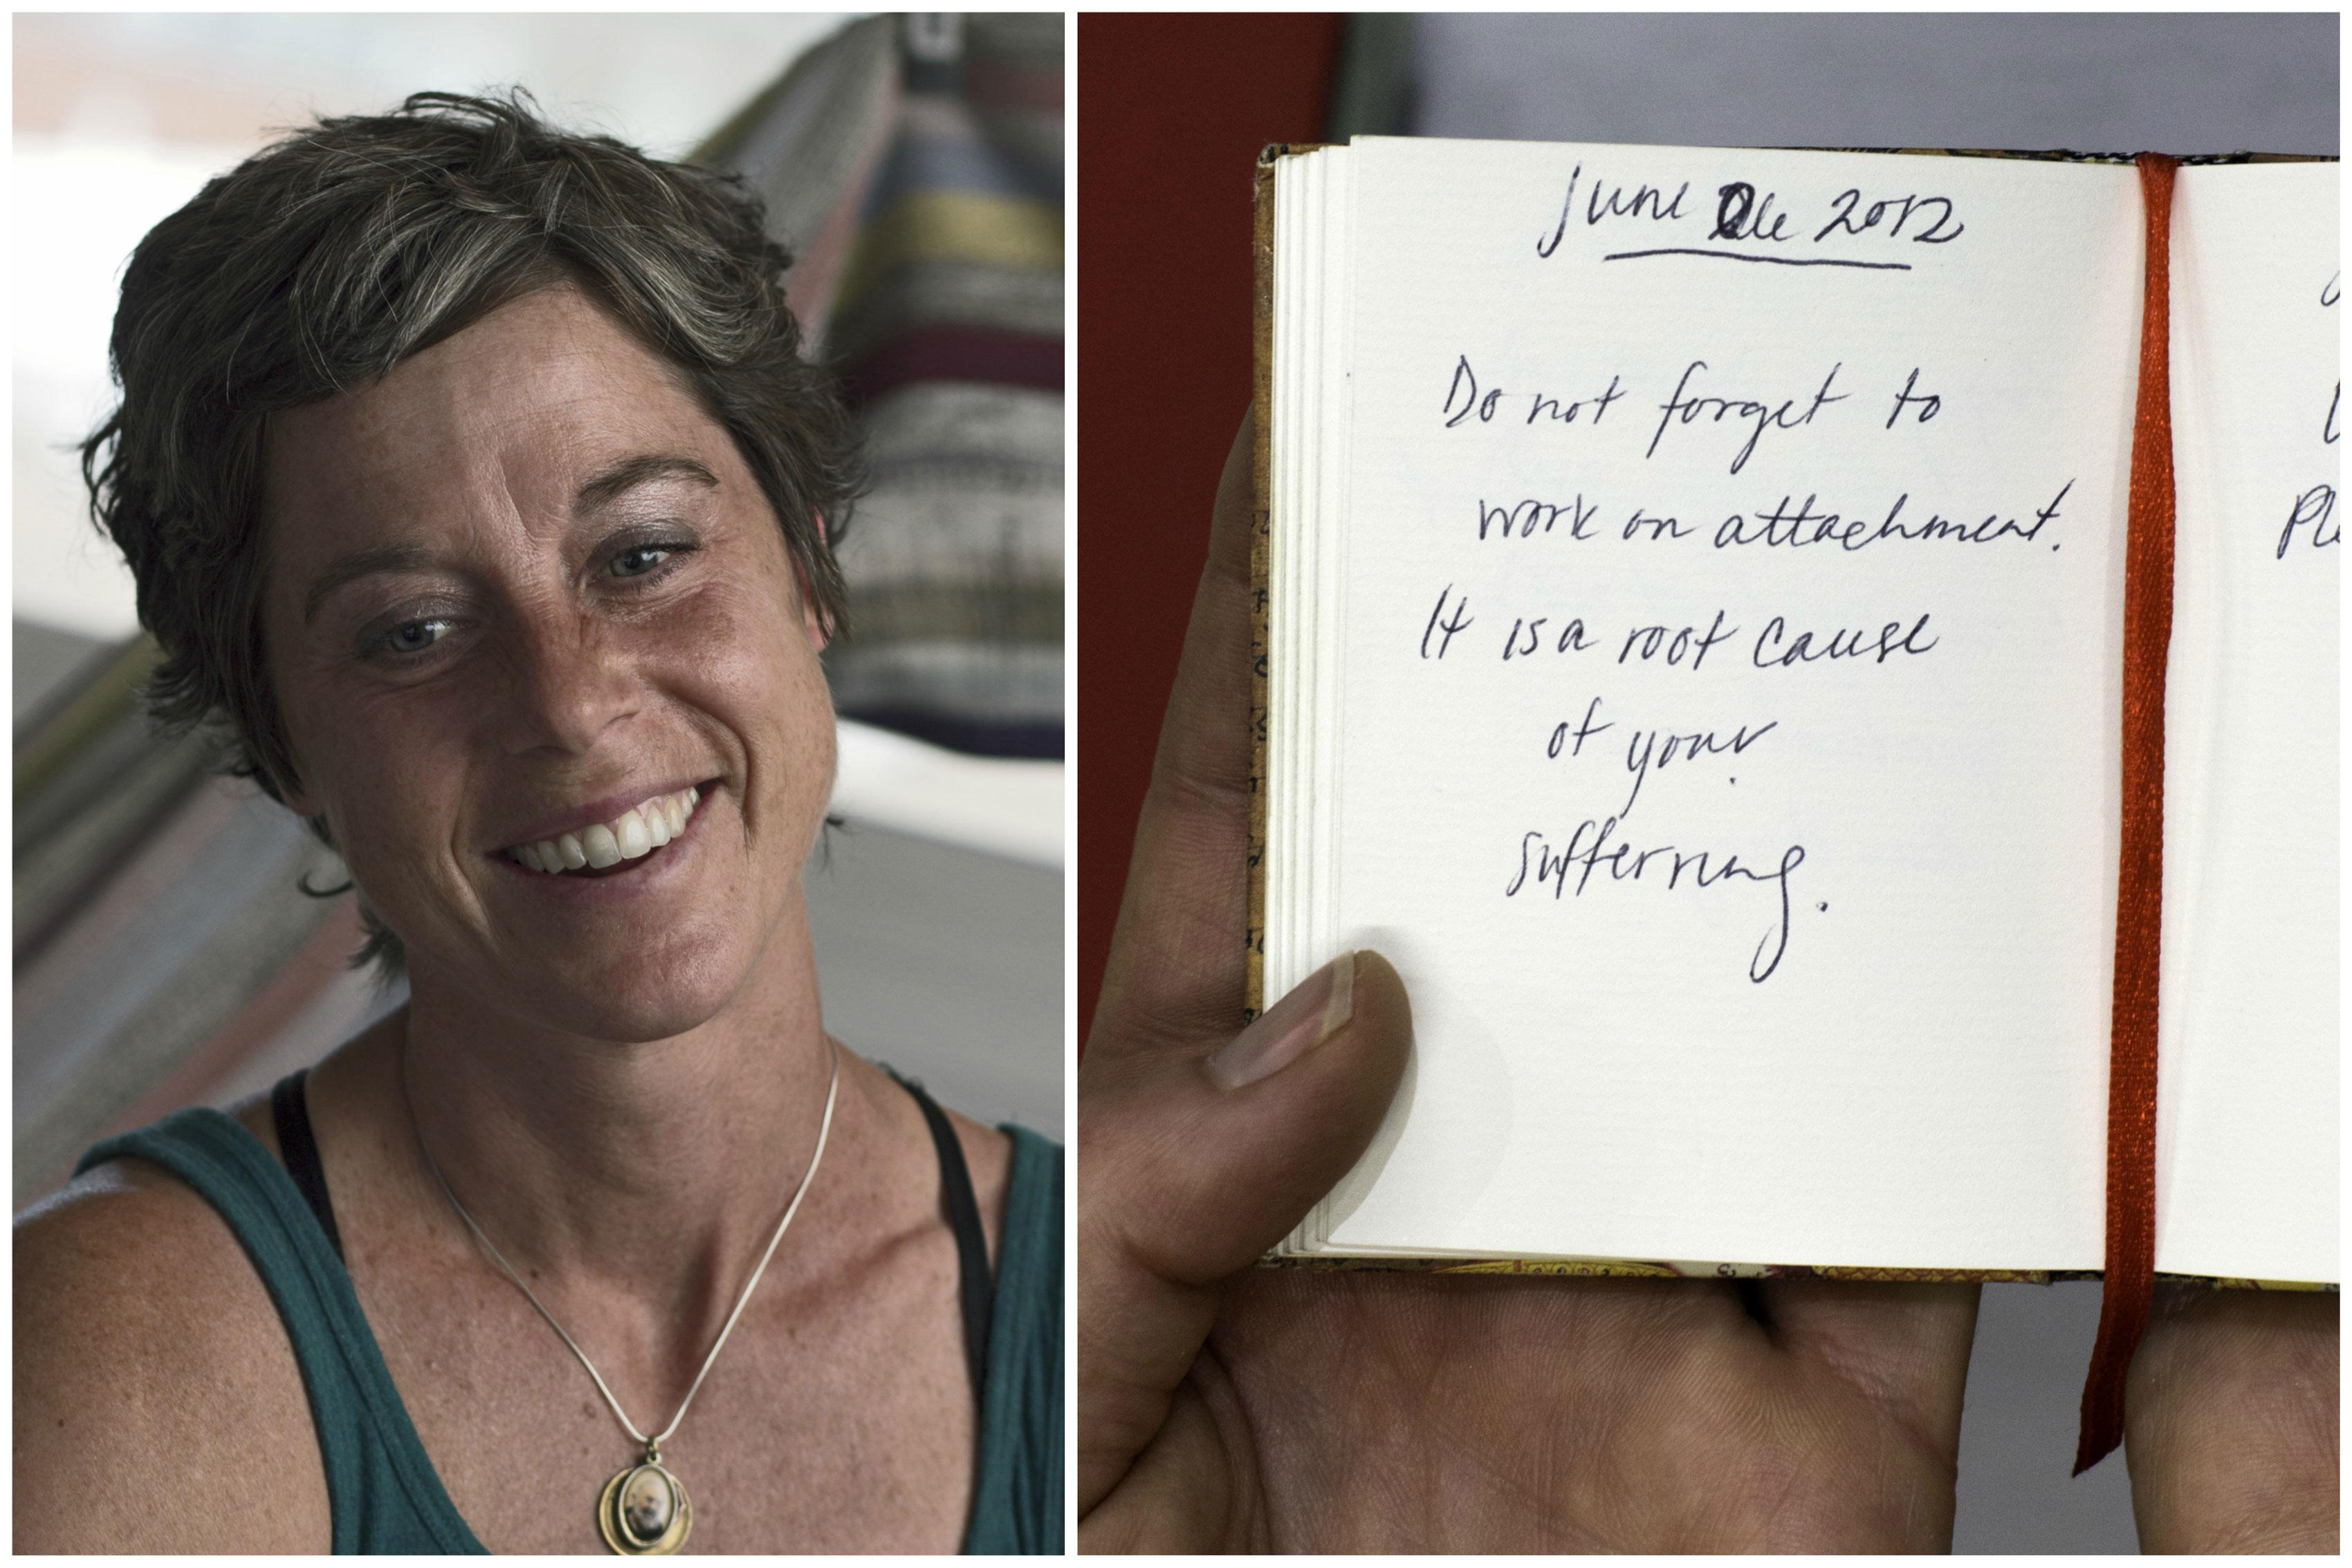 June 2012
Do not forget to
work on attachment.
It is a root cause
of your
suffering.